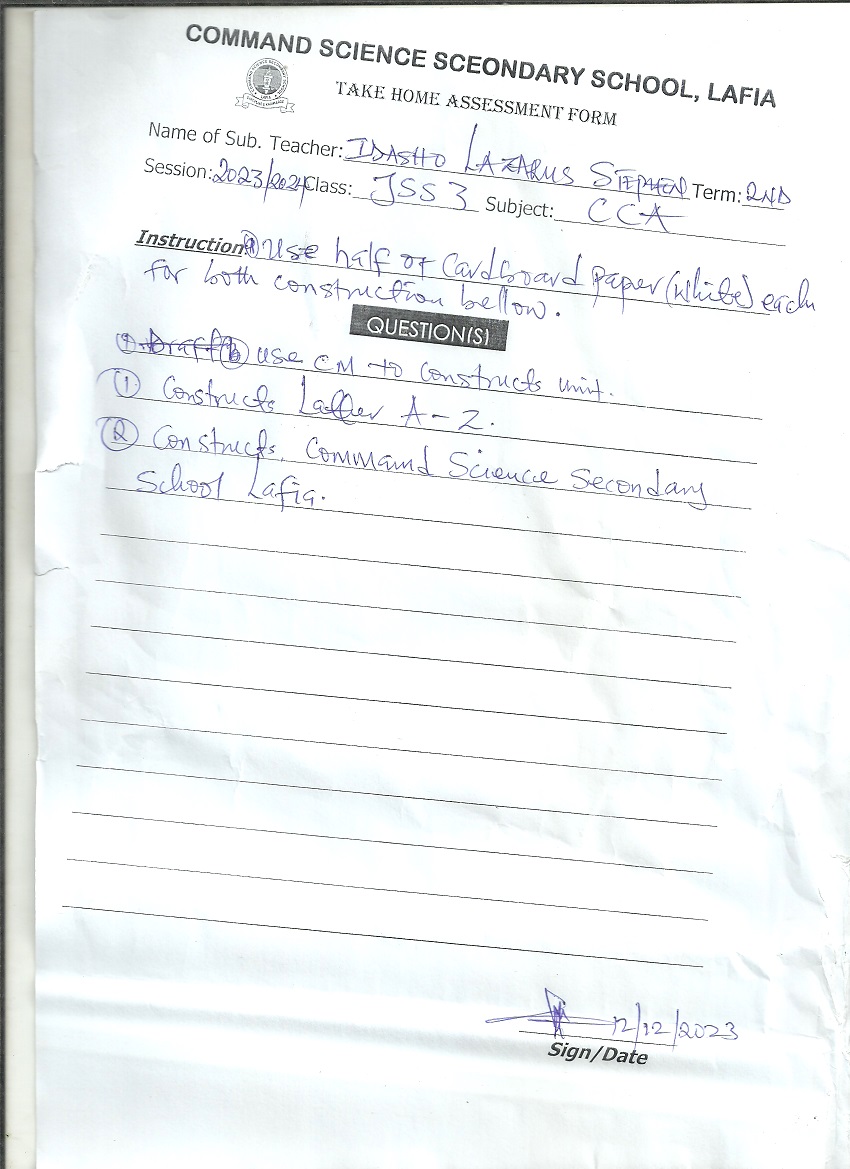 COMMAND SCIENCE SCEONDARY SCHOOL, LAFIA
TAKE HOME ASSESSMENT FORM
Name of Sub. Teacher: IDASHO LAZARUS STEPHEN Term: 2ND
Session: 2023/2024 Class: JSS 3 Subject: CCA
Instruction (a) Use half of Cardboard Paper (white) each
for both construction bellow.
QUESTION(S)
(b) use CM to constructs unit.
(1) Constructs Latter A - Z.
(2) Constructs, Command Science Secondary
School Lafia.
12/12/2023
Sign/Date